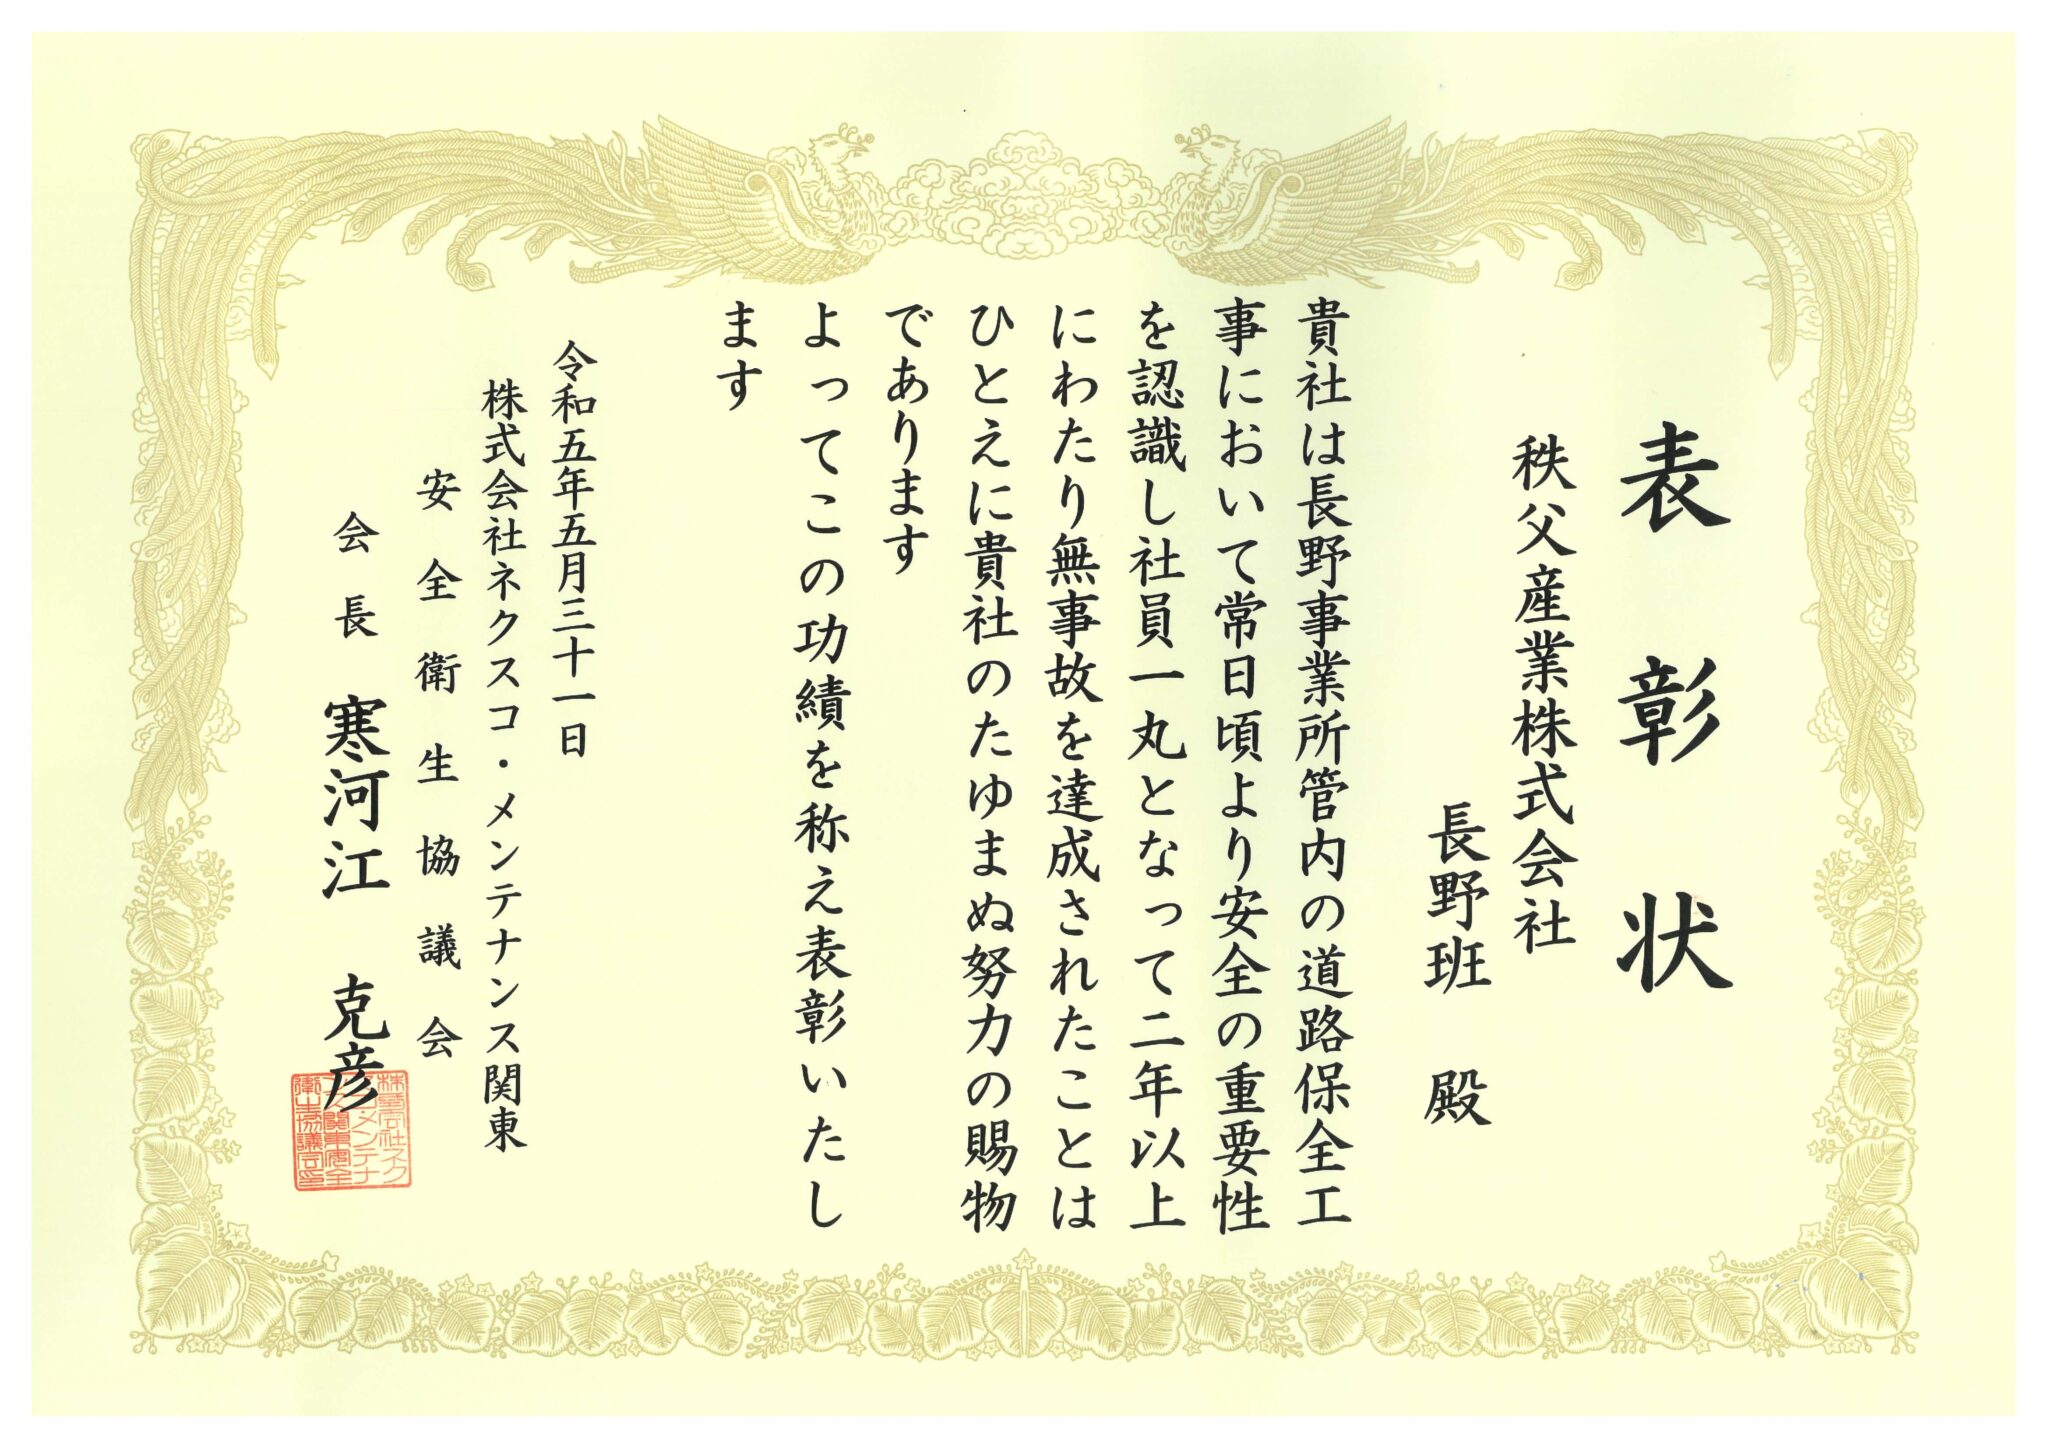 表彰状
秩父産業株式会社
長野班 殿
貴社は長野事業所管内の道路保全工
事において常日頃より安全の重要性
を認識し社員一丸となって二年以上
にわたり無事故を達成されたことは
ひとえに貴社のたゆまぬ努力の賜物
であります
よってこの功績を称え表彰いたし
ます
令和五年五月三十一日
株式会社ネクスコ・メンテナンス関東
安全衛生協議会
会長 寒河江 克彦